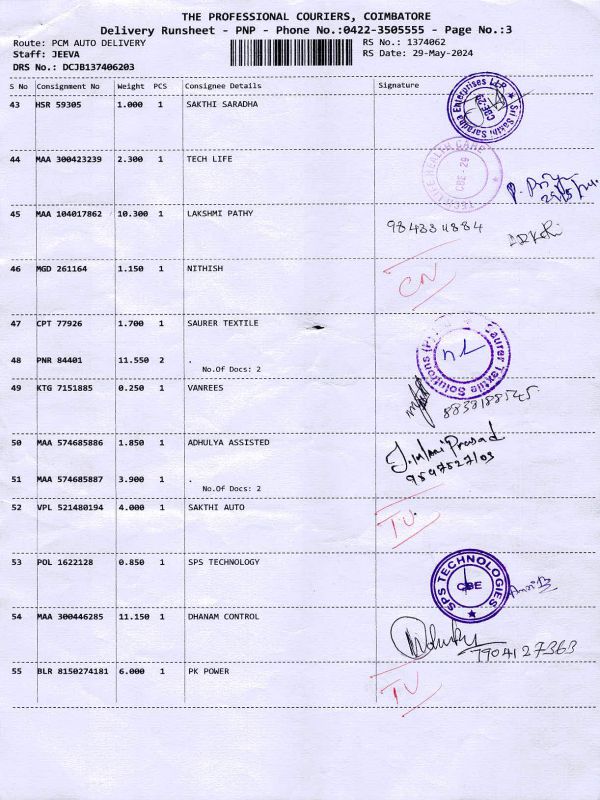 THE PROFESSIONAL COURIERS, COIMBATORE
Delivery Runsheet - PNP - Phone No.:0422-3505555 - Page No.:3
Route: PCM AUTO DELIVERY
Staff: JEEVA
DRS No.: DCJB137406203
RS No.: 1374062
RS Date: 29-May-2024
S No Consignment No Weight PCS Consignee Details Signature
43 HSR 59305 1.000 1 SAKTHI SARADHA
Sri Sakthi Saradha Enterprises LLP
CBE-29
44 MAA 300423239 2.300 1 TECH LIFE
TECH LIFE HEALTH CARE
CBE-29
45 MAA 104017862 10.300 1 LAKSHMI PATHY
46 MGD 261164 1.150 1 NITHISH
CN
47 CPT 77926 1.700 1 SAURER TEXTILE
Saurer Textile Solutions
48 PNR 84401 11.550 2 .
No.Of Docs: 2
49 KTG 7151885 0.250 1 VANREES
8838188545
50 MAA 574685886 1.850 1 ADHULYA ASSISTED
51 MAA 574685887 3.900 1 .
No.Of Docs: 2
52 VPL 521480194 4.000 1 SAKTHI AUTO
53 POL 1622128 0.850 1 SPS TECHNOLOGY
SPS TECHNOLOGIES
CBE
54 MAA 300446285 11.150 1 DHANAM CONTROL
7904127363
55 BLR 8150274181 6.000 1 PK POWER